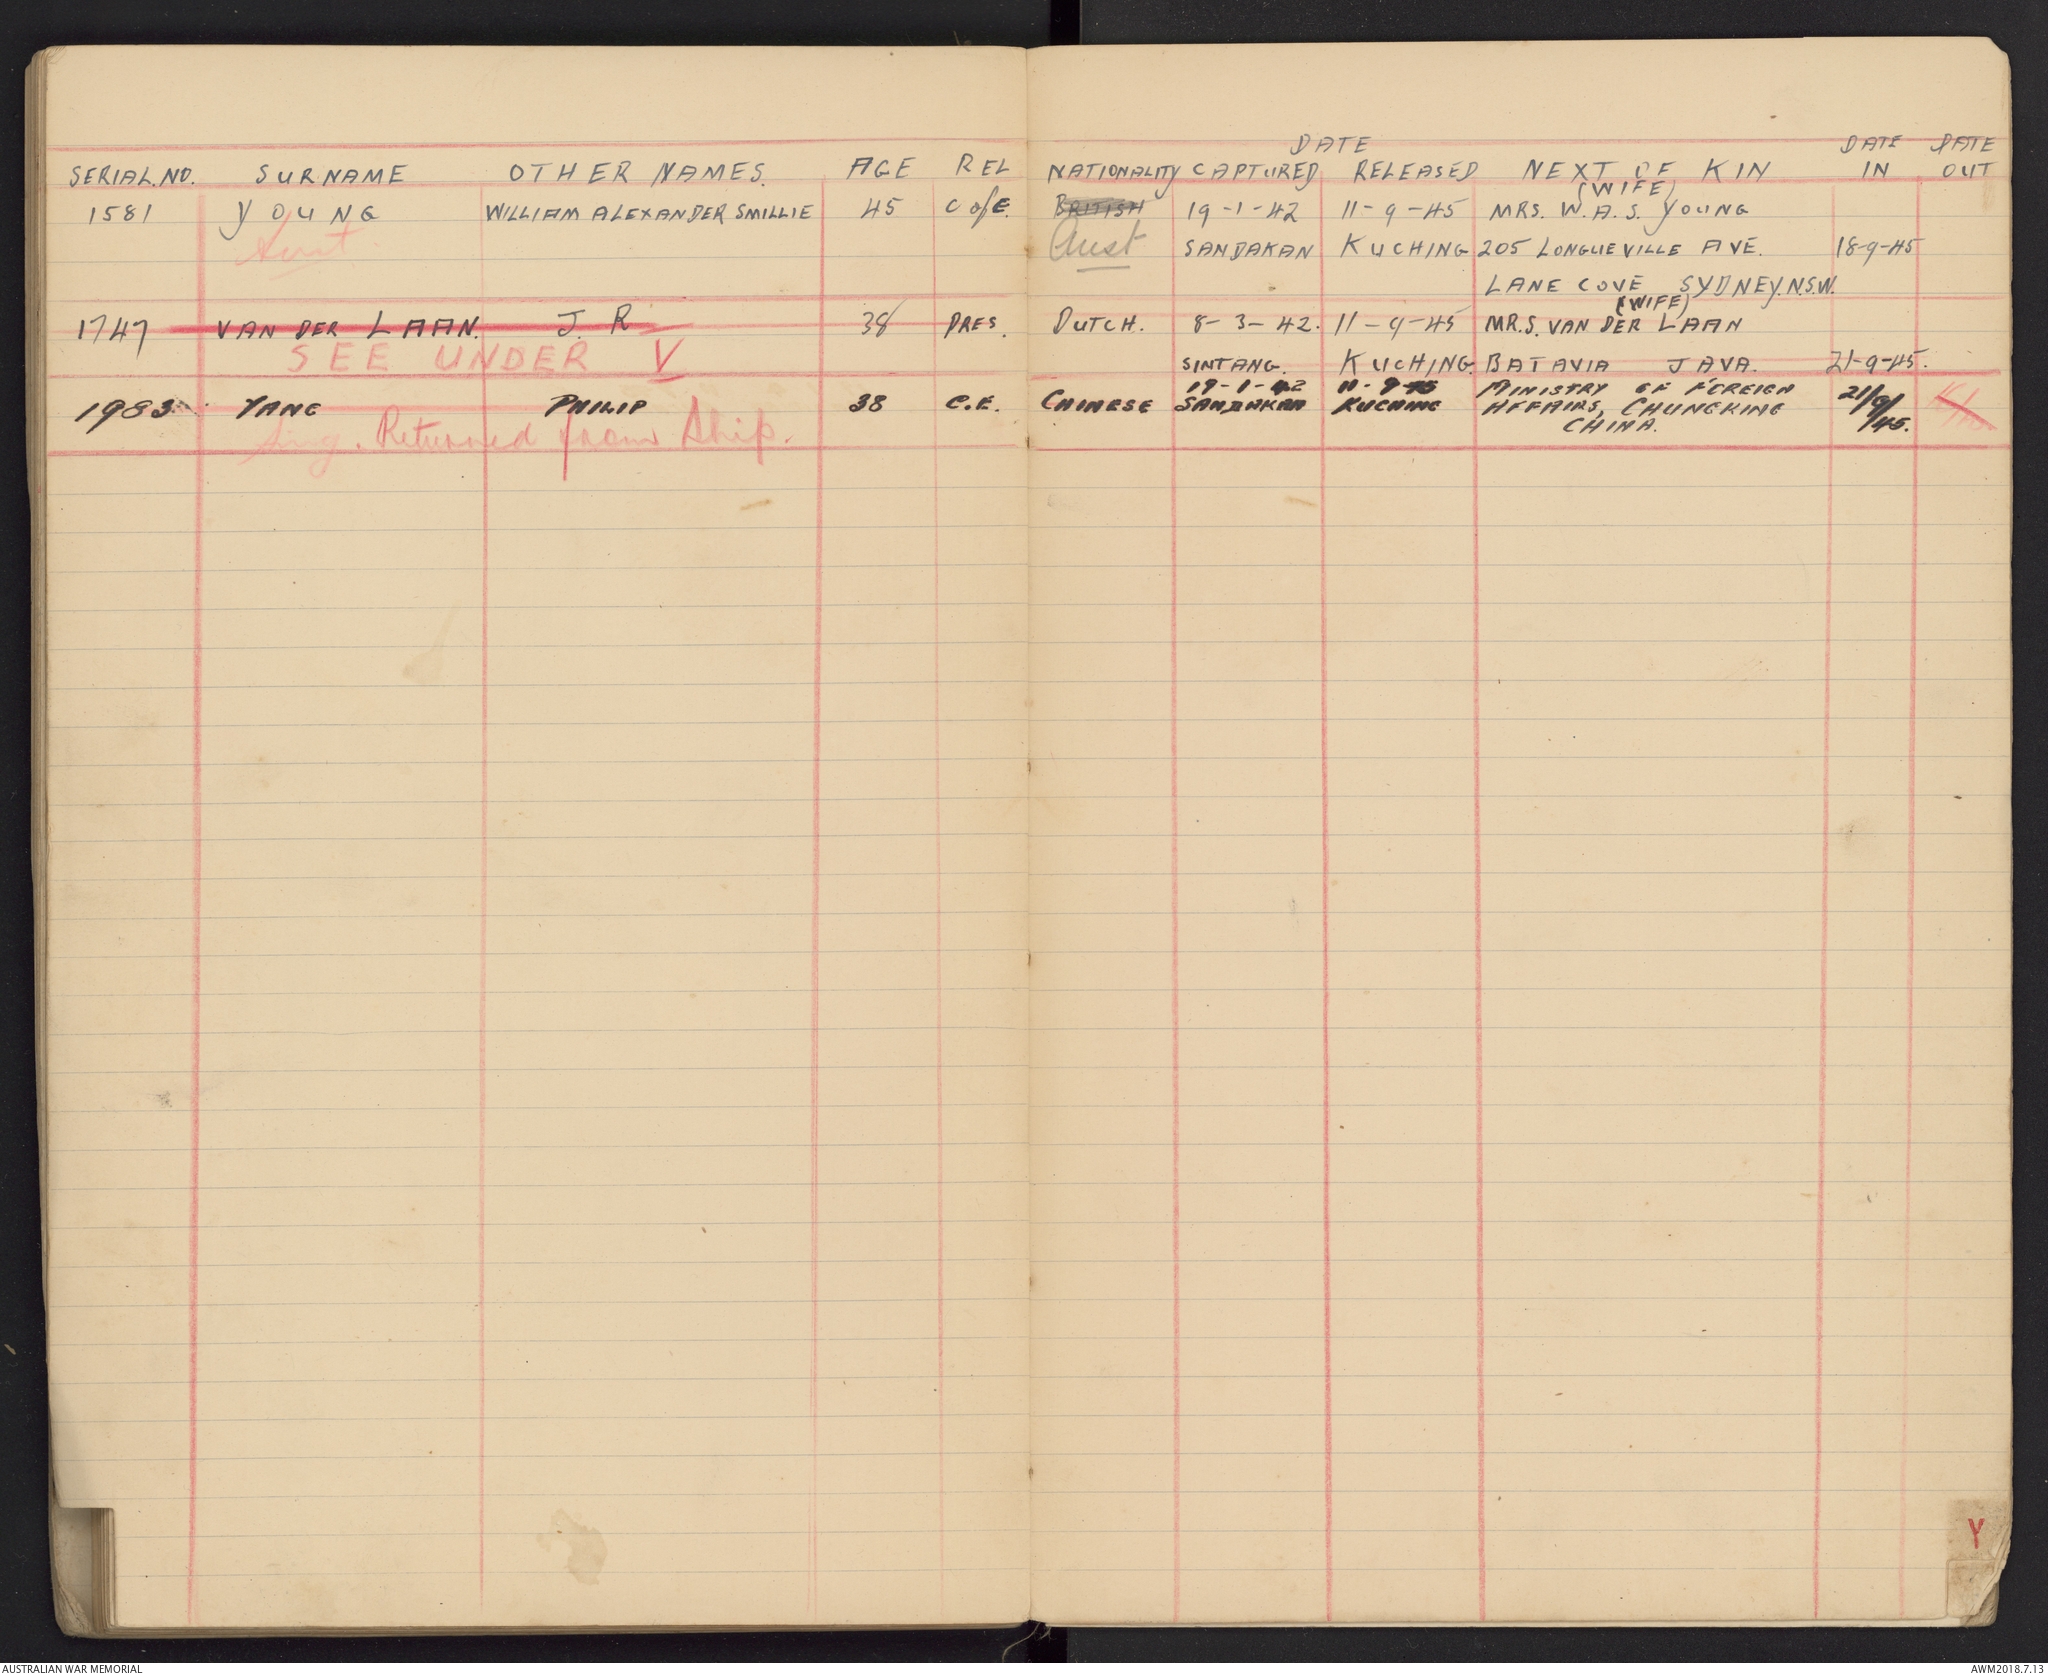 DATE DATE DATE
SERIAL.NO. SURNAME OTHER NAMES. AGE REL NATIONALITY CAPTURED RELEASED NEXT OF KIN IN OUT
(WIFE)
1581 YOUNG WILLIAM ALEXANDER SMILLIE 45 C of E. BRITISH 19-1-42 11-9-45 MRS. W.A.S. YOUNG
Aust Aust SANDAKAN KUCHING 205 LONGUEVILLE AVE. 18-9-45
LANE COVE SYDNEY.N.S.W.
(WIFE)
1747 VAN DER LAAN. J. R 38 PRES. DUTCH. 8-3-42. 11-9-45 MRS. VAN DER LAAN
SEE UNDER V SINTANG. KUCHING. BATAVIA JAVA. 21-9-45.
19-1-42 11-9-45 MINISTRY OF FOREIGN
1983 YANG PHILIP 38 C.E. CHINESE SANDAKAN KUCHING AFFAIRS, CHUNGKING 21/9/45.
Sing. Returned from Ship. CHINA.
Y
AUSTRALIAN WAR MEMORIAL AWM2018.7.13